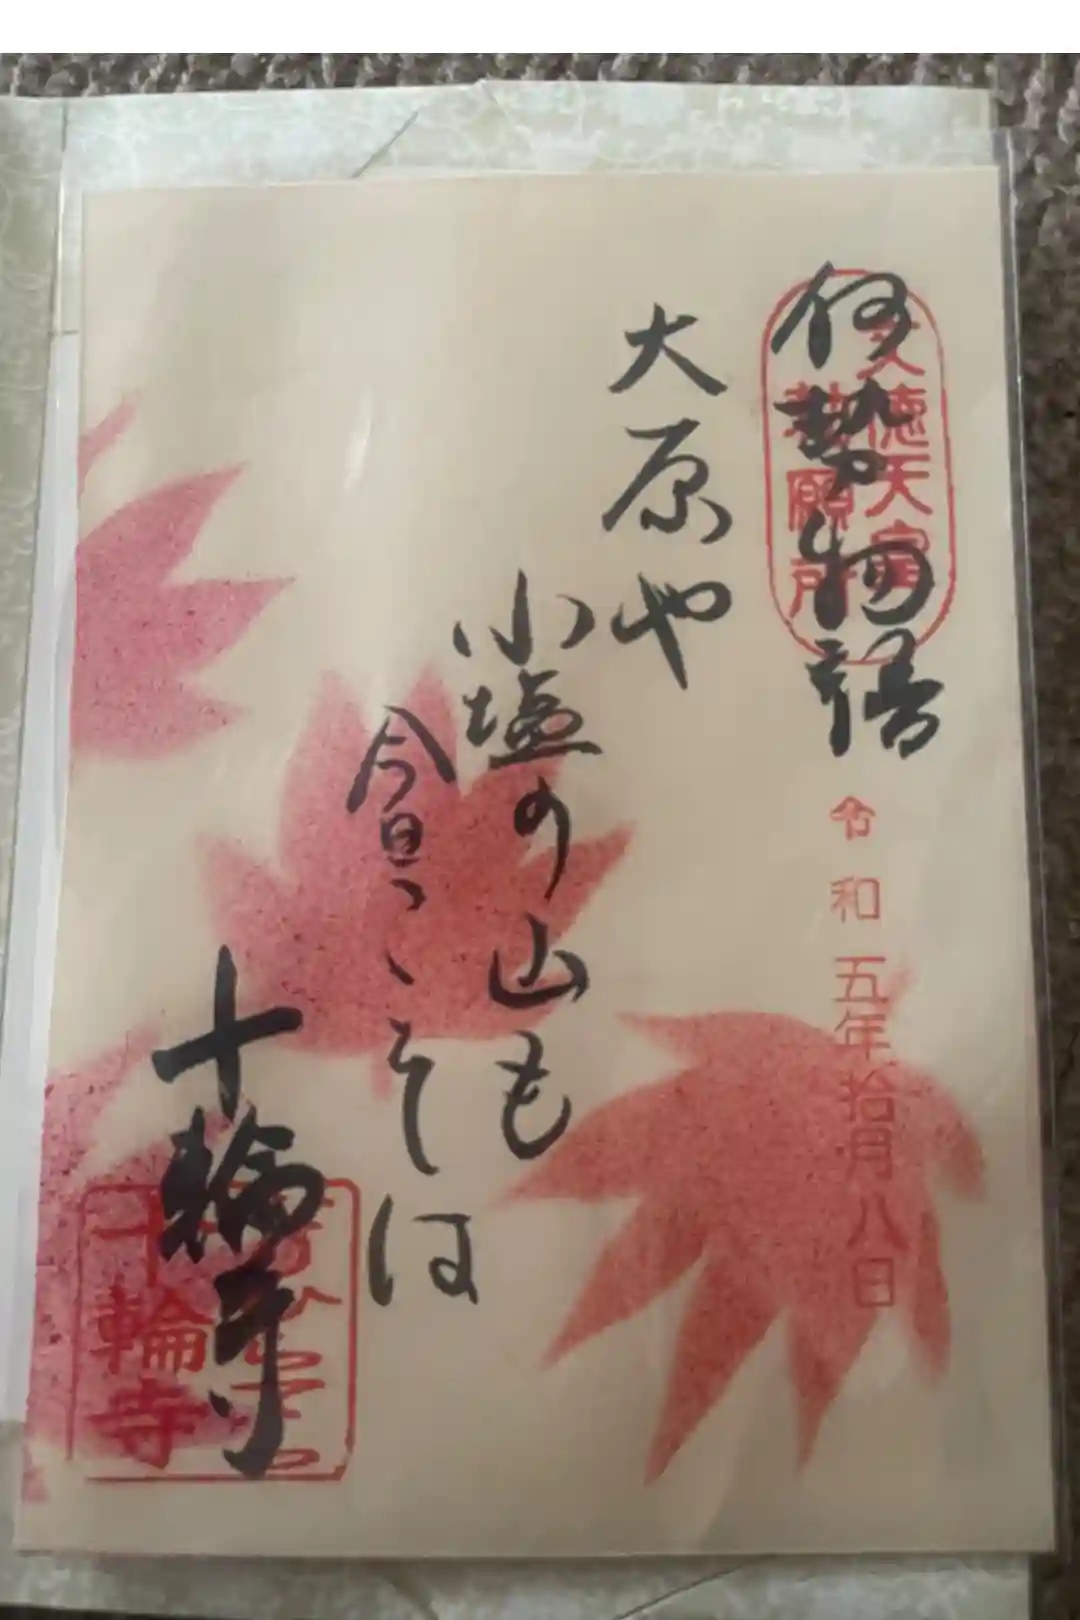 伊勢物語
文徳天皇
勅願所
令和五年拾月八日
大原や
小塩の山も
今日こそは
十輪寺
十輪寺